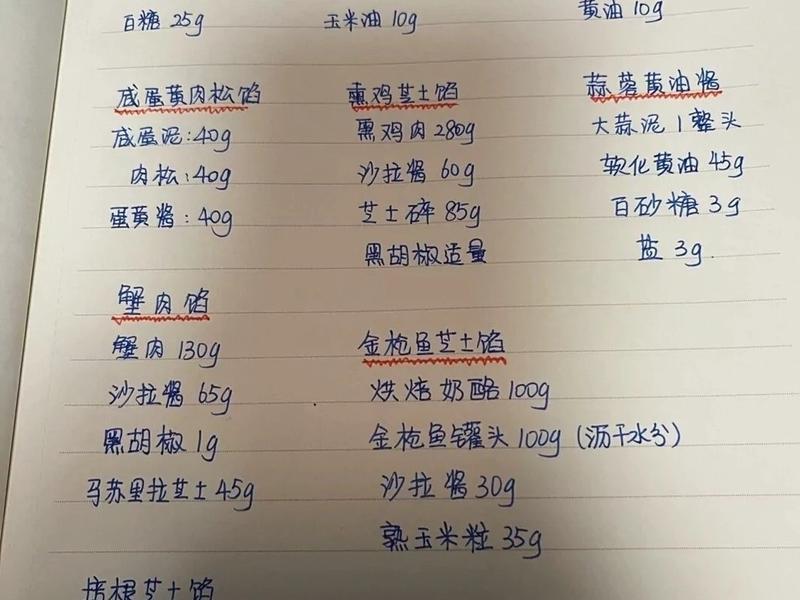 白糖 25g
玉米油 10g
黄油 10g
咸蛋黄肉松馅
咸蛋泥:40g
肉松:40g
蛋黄酱:40g
熏鸡芝士馅
熏鸡肉 280g
沙拉酱 60g
芝士碎 85g
黑胡椒适量
蒜蓉黄油酱
大蒜泥 1 整头
软化黄油 45g
白砂糖 3g
盐 3g.
蟹肉馅
蟹肉 130g
沙拉酱 65g
黑胡椒 1g
马苏里拉芝士 45g
金枪鱼芝士馅
烘焙奶酪 100g
金枪鱼罐头 100g (沥干水分)
沙拉酱 30g
熟玉米粒 35g
培根芝士馅